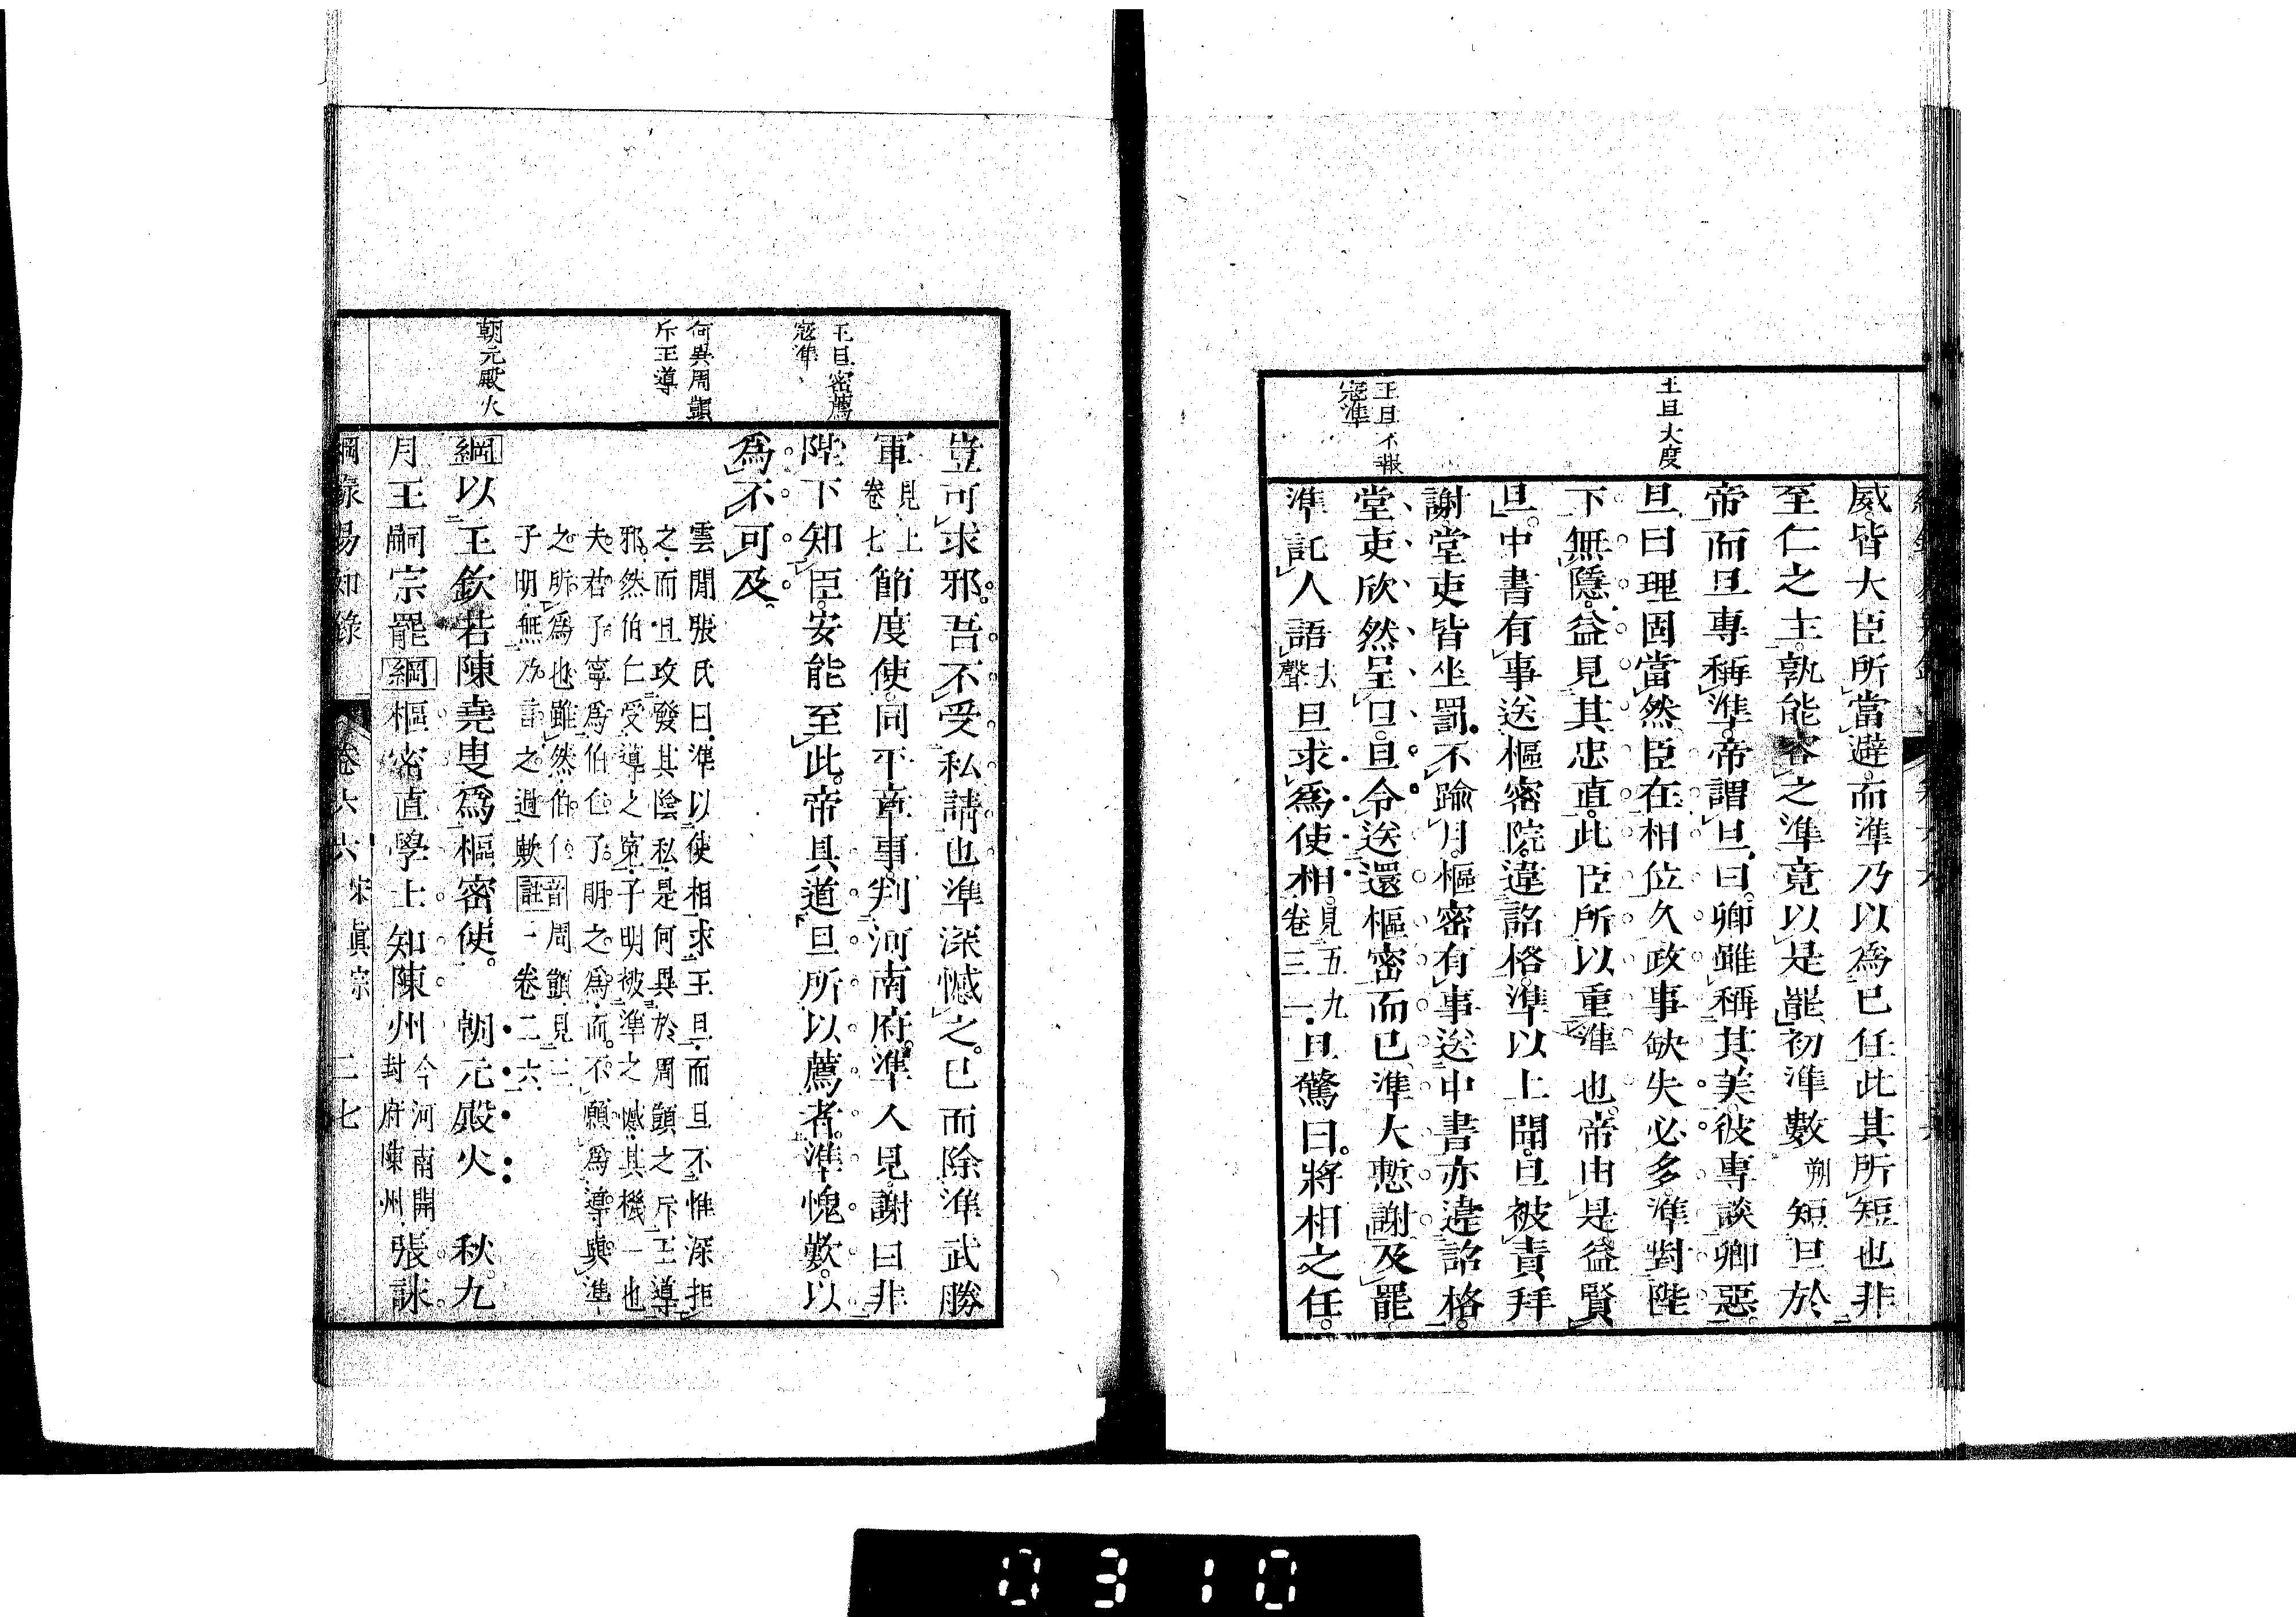 王旦大度
王旦不報
寇準
威皆大臣所當避而準乃以為己任此其所短也非
至仁之主孰能容之準竟以是罷初準數朔短旦於
帝而旦專稱準帝謂旦曰卿雖稱其美彼專談卿惡
旦曰理固當然臣在相位久政事缺失必多準對陛
下無隱益見其忠直此臣所以重準也帝由是益賢
旦中書有事送樞密院違詔格準以上聞旦被責拜
謝堂吏皆坐罰不踰月樞密有事送中書亦違詔格
堂吏欣然呈曰旦令送還樞密而已準大慙謝及罷
準託人語去聲旦求為使相見五九卷三一旦驚曰將相之任
王旦密薦
寇準
何異周顗
斥王導
朝元殿火
豈可求邪吾不受私請也準深憾之已而除準武勝
軍見上卷七節度使同平章事判河南府準入見謝曰非
陛下知臣安能至此帝具道旦所以薦者準愧歎以
為不可及
雲閒張氏曰準以使相求王旦而旦不惟深拒
之而且攻發其陰私是何異於周顗之斥王導
邪然伯仁受導之冤子明被準之憾其機一也
夫若子寧為伯仁子明之為而不願為導與準
之所為也雖然伯仁音周顗見二
子明無乃言之過歟註一卷二六
綱以王欽若陳堯叟為樞密使 朝元殿火 秋九
月王嗣宗罷綱樞密直學士知陳州今河南開封府陳州張詠
綱鑑易知錄 卷六六 宋眞宗 二七
0310